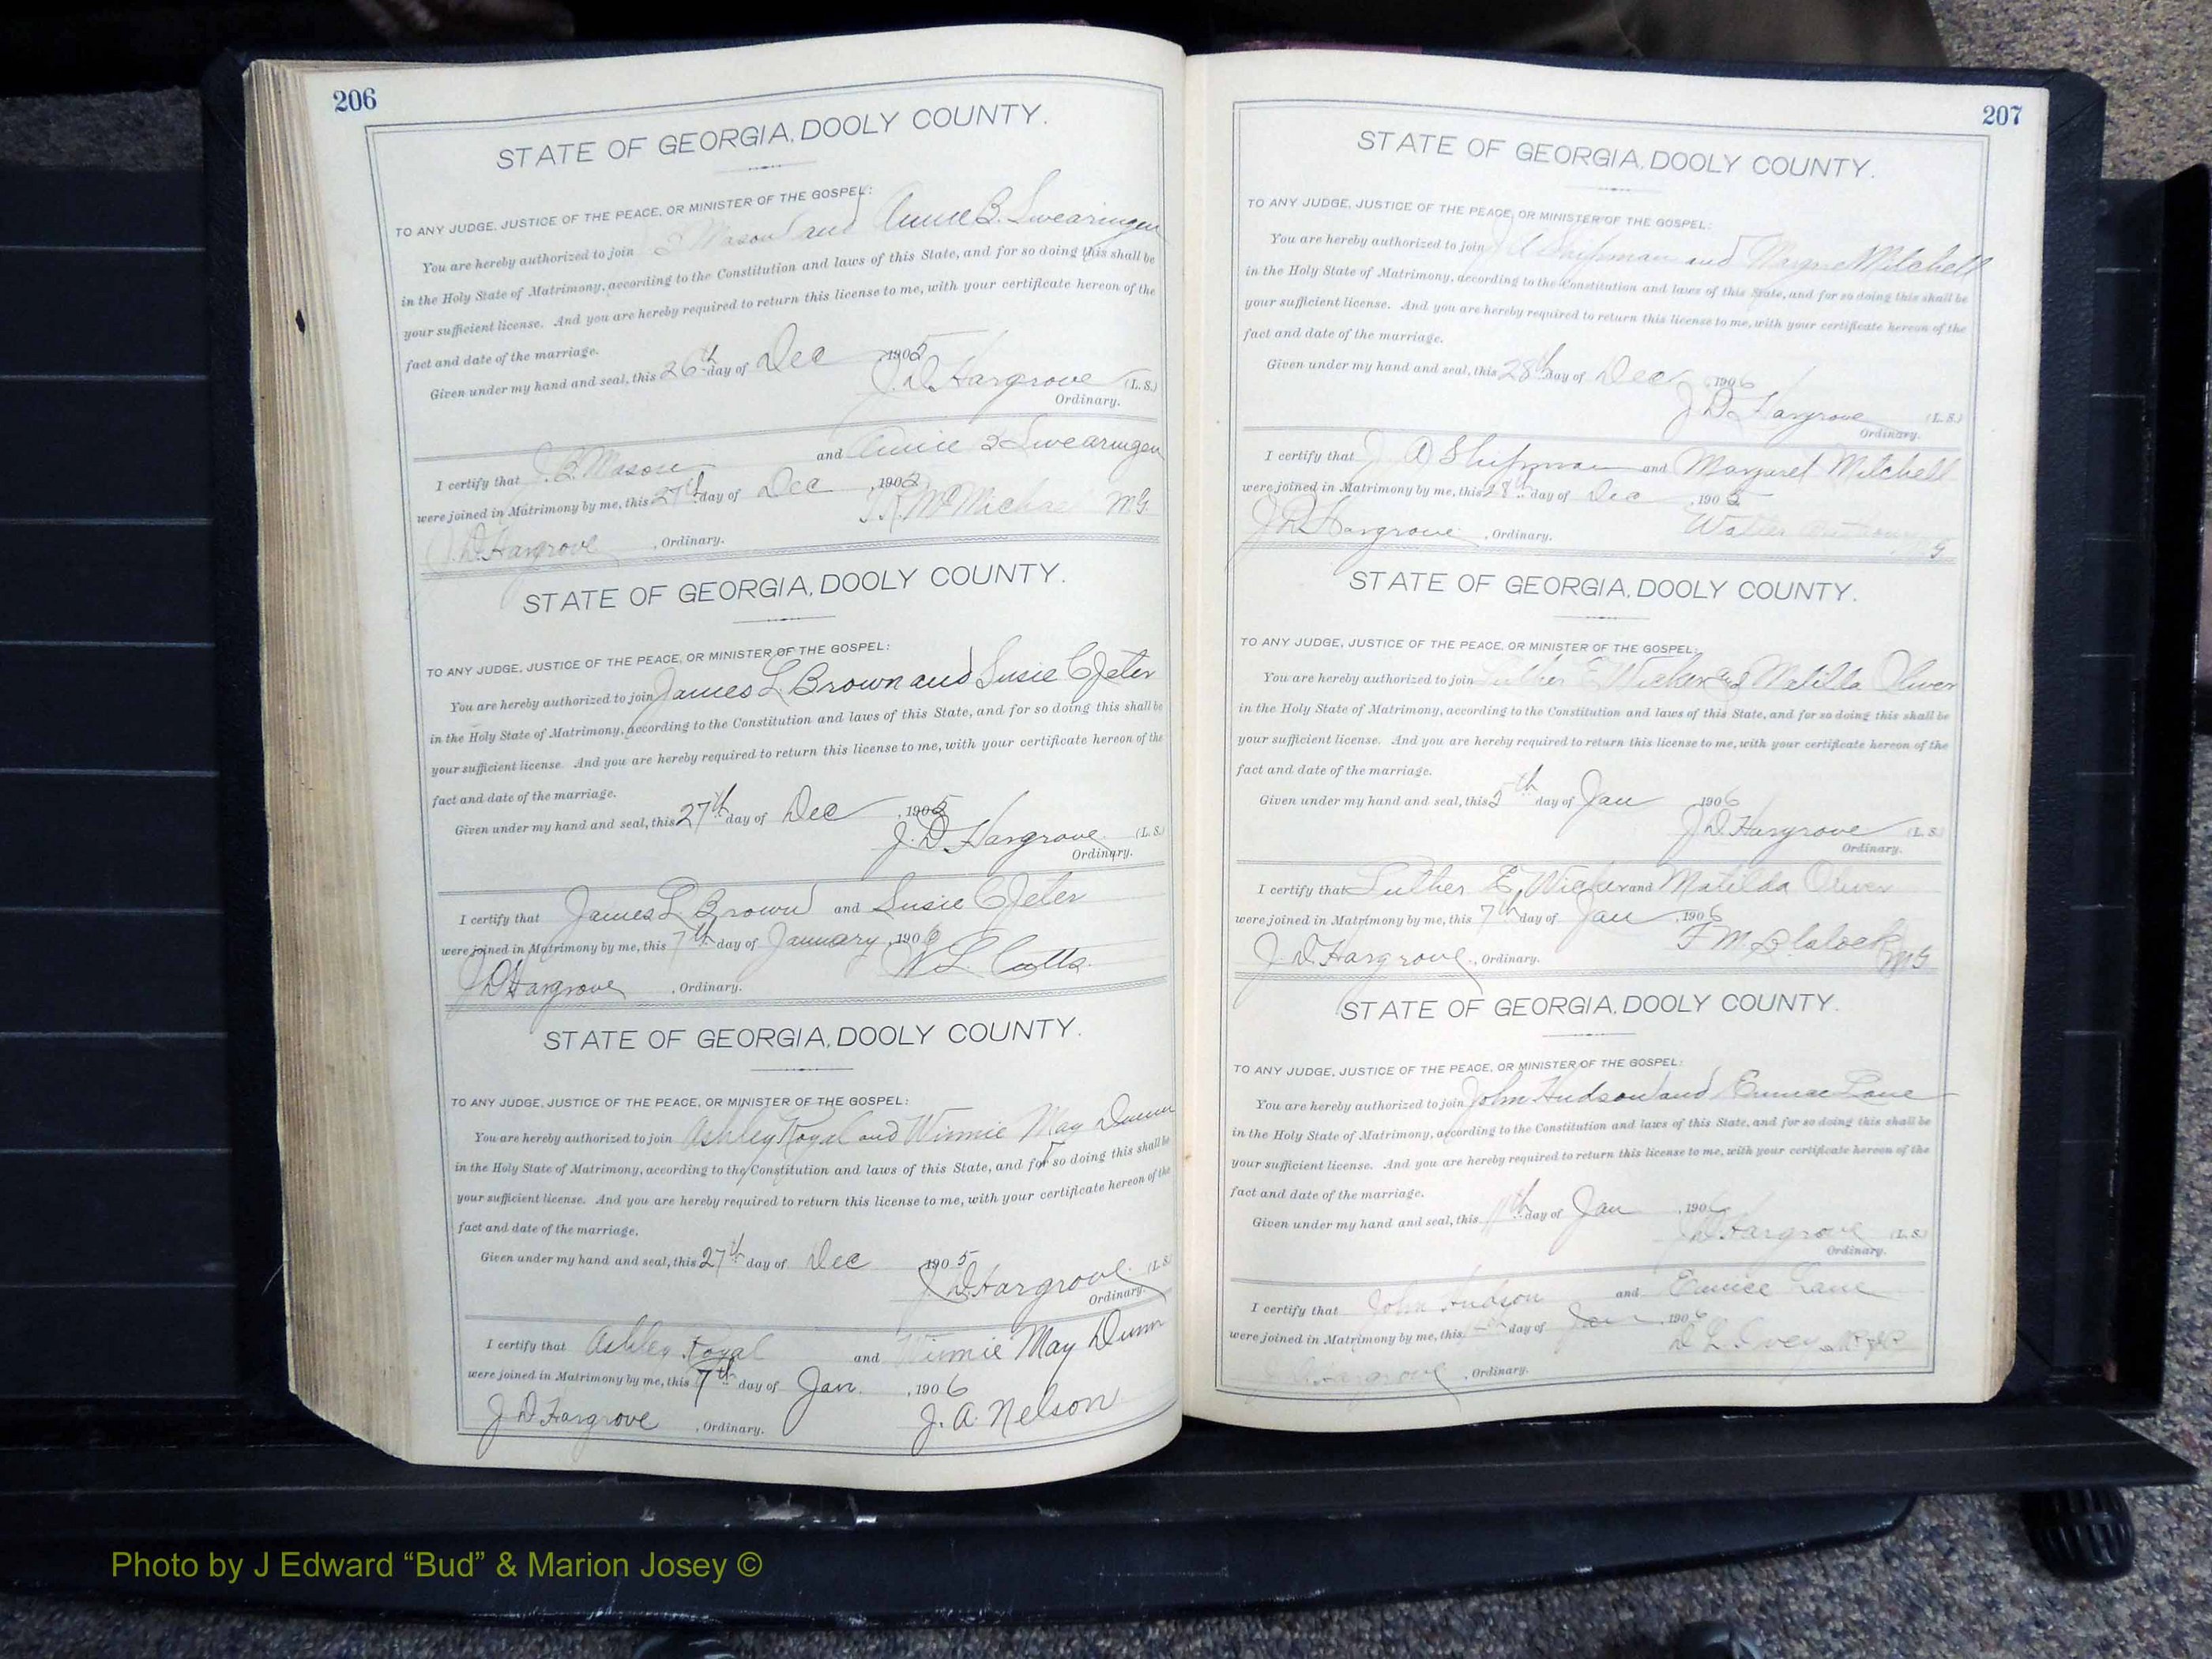 206
STATE OF GEORGIA, DOOLY COUNTY.
TO ANY JUDGE, JUSTICE OF THE PEACE, OR MINISTER OF THE GOSPEL:
You are hereby authorized to join Mason and Annie B. Swearingen
in the Holy State of Matrimony, according to the Constitution and laws of this State, and for so doing this shall be
your sufficient license. And you are hereby required to return this license to me, with your certificate hereon of the
fact and date of the marriage.
Given under my hand and seal, this 26th day of Dec 1905
J. D. Hargrove (L. S.)
Ordinary.
I certify that Mason and Annie Swearingen
were joined in Matrimony by me, this 27th day of Dec , 190
M.G.
J. D. Hargrove , Ordinary.
STATE OF GEORGIA, DOOLY COUNTY.
TO ANY JUDGE, JUSTICE OF THE PEACE, OR MINISTER OF THE GOSPEL:
You are hereby authorized to join James L Brown and Susie C Jeter
in the Holy State of Matrimony, according to the Constitution and laws of this State, and for so doing this shall be
your sufficient license. And you are hereby required to return this license to me, with your certificate hereon of the
fact and date of the marriage.
Given under my hand and seal, this 27th day of Dec , 1905
J. D. Hargrove (L. S.)
Ordinary.
I certify that James L. Brown and Susie C Jeter
were joined in Matrimony by me, this 7th day of January , 1906
W. L. Cutts.
J D Hargrove , Ordinary.
STATE OF GEORGIA, DOOLY COUNTY.
TO ANY JUDGE, JUSTICE OF THE PEACE, OR MINISTER OF THE GOSPEL:
You are hereby authorized to join Ashley Royal and Winnie May Dunn
in the Holy State of Matrimony, according to the Constitution and laws of this State, and for so doing this shall be
your sufficient license. And you are hereby required to return this license to me, with your certificate hereon of the
fact and date of the marriage.
Given under my hand and seal, this 27th day of Dec 1905
J. D. Hargrove (L. S.)
Ordinary.
I certify that Ashley Royal and Winnie May Dunn
were joined in Matrimony by me, this 7th day of Jan. , 1906
J. A. Nelson
J D Hargrove , Ordinary.
207
STATE OF GEORGIA, DOOLY COUNTY.
TO ANY JUDGE, JUSTICE OF THE PEACE, OR MINISTER OF THE GOSPEL:
You are hereby authorized to join Shipman and Mitchell
in the Holy State of Matrimony, according to the Constitution and laws of this State, and for so doing this shall be
your sufficient license. And you are hereby required to return this license to me, with your certificate hereon of the
fact and date of the marriage.
Given under my hand and seal, this 28th day of Dec , 1906
J. D. Hargrove (L. S.)
Ordinary.
I certify that J A Shipman and Margaret Mitchell
were joined in Matrimony by me, this 28th day of Dec , 1905
Walter
J. D. Hargrove , Ordinary.
STATE OF GEORGIA, DOOLY COUNTY.
TO ANY JUDGE, JUSTICE OF THE PEACE, OR MINISTER OF THE GOSPEL:
You are hereby authorized to join Luther E Wicker and Matilla Oliver
in the Holy State of Matrimony, according to the Constitution and laws of this State, and for so doing this shall be
your sufficient license. And you are hereby required to return this license to me, with your certificate hereon of the
fact and date of the marriage.
Given under my hand and seal, this 5th day of Jan 1906
J. D. Hargrove (L. S.)
Ordinary.
I certify that Luther E. Wicker and Matilda Oliver
were joined in Matrimony by me, this 7th day of Jan , 1906
F M Blalock MG
J. D. Hargrove , Ordinary.
STATE OF GEORGIA, DOOLY COUNTY.
TO ANY JUDGE, JUSTICE OF THE PEACE, OR MINISTER OF THE GOSPEL:
You are hereby authorized to join John Hudson and Eunice Lane
in the Holy State of Matrimony, according to the Constitution and laws of this State, and for so doing this shall be
your sufficient license. And you are hereby required to return this license to me, with your certificate hereon of the
fact and date of the marriage.
Given under my hand and seal, this 11th day of Jan , 1906
J D Hargrove (L. S.)
Ordinary.
I certify that John Hudson and Eunice Lane
were joined in Matrimony by me, this day of Jan , 1906
D L Ivey
J D Hargrove , Ordinary.
Photo by J Edward “Bud” & Marion Josey ©